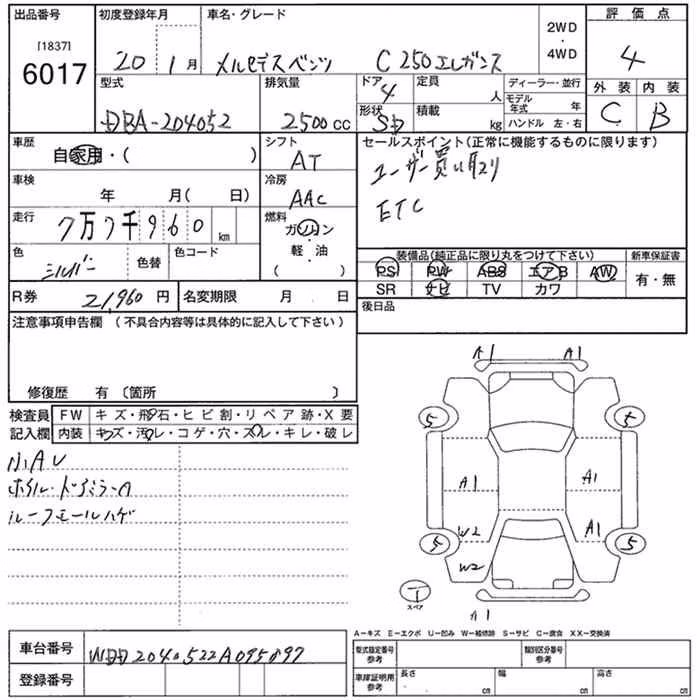 出品番号
[1837]
6017
初度登録年月
20 1月
車名・グレード
メルセデスベンツ C250エレガンス
2WD
・
4WD
評価点
4
外装 内装
C B
型式
DBA-204052
排気量
2500cc
ドア
4
形状
SD
定員
人
積載
kg
ディーラー・並行
モデル年式 年
ハンドル 左・右
車歴
自家用・( )
シフト
AT
車検
年 月( 日)
冷房
AAC
走行
7万7千960 km
燃料
ガソリン
・
軽・油
( )
色
シルバー
色替
色コード
R券
21,960円
名変期限 月 日
セールスポイント(正常に機能するものに限ります)
ユーザー買い取り
ETC
装備品(純正品に限り丸をつけて下さい)
PS PW ABS エアB AW
SR ナビ TV カワ
新車保証書
有・無
後日品
注意事項申告欄(不具合内容等は具体的に記入して下さい)
修復歴 有〔箇所 〕
検査員
記入欄
FW キズ・飛石・ヒビ割・リペア跡・X要
内装 キズ・汚レ・コゲ・穴・スレ・キレ・破レ
小AU
ホイル・ドアミラーA
ルーフモールハゲ
A1 A1
5 5
A1 A1
W2 A1
5 5
W2
T
スペア
A1
A−キズ E−エクボ U−凹み W−補修跡 S−サビ C−腐食 XX−交換済
車台番号
WDD2040522A095897
登録番号
型式指定番号
参考
類別区分番号
参考
車庫証明用
参考
長さ cm
幅 cm
高さ cm